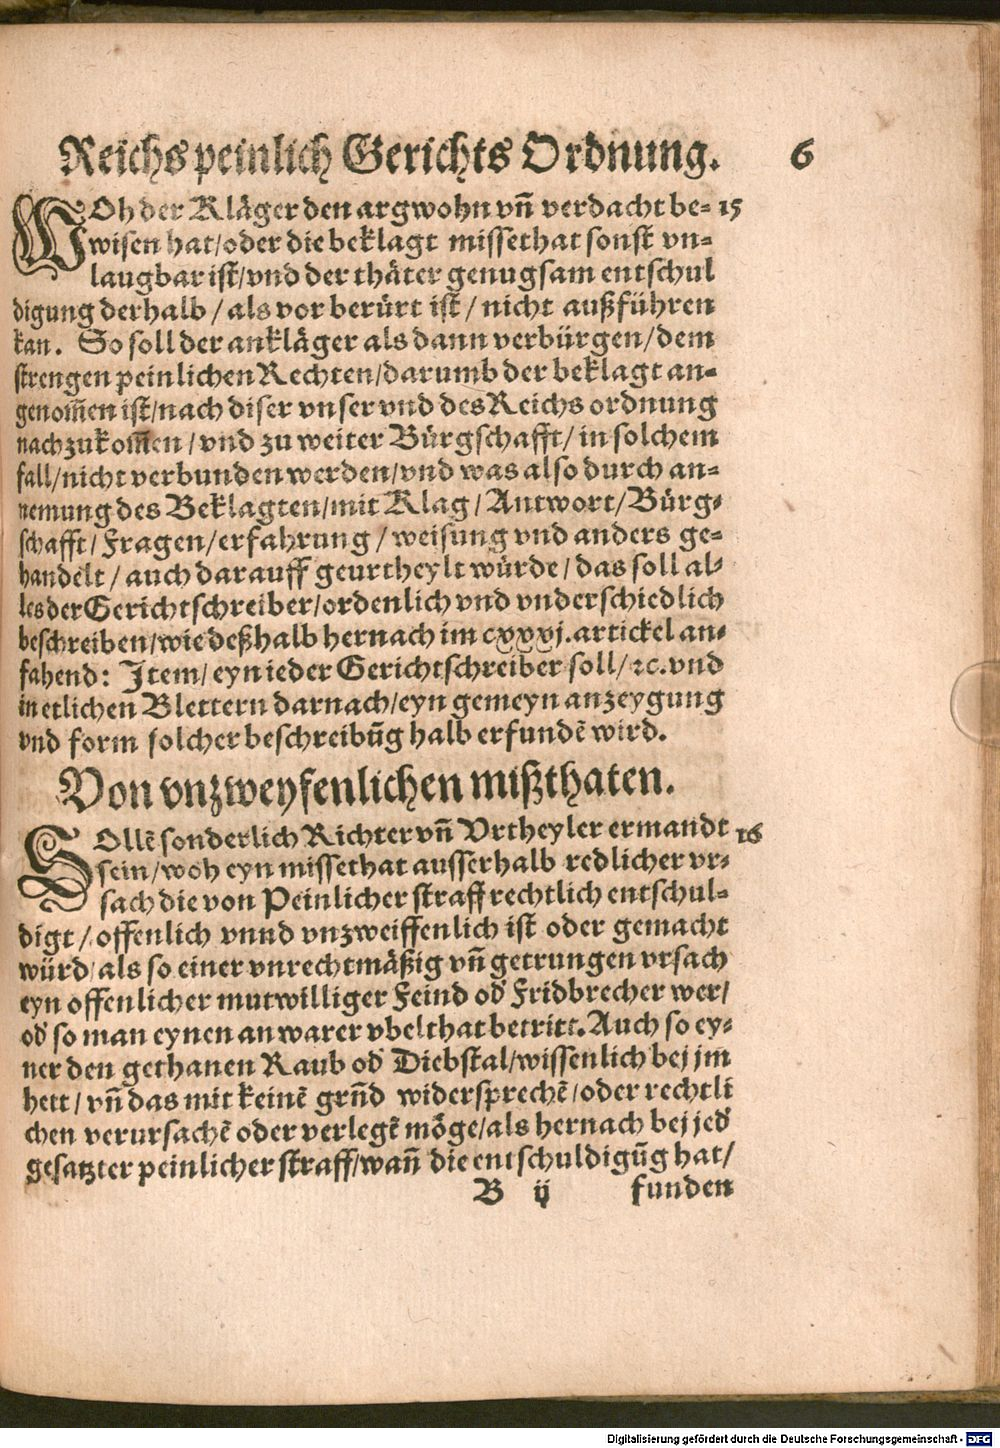 Reichs peinlich Gerichts Ordnung. 6
WOh der Kläger den argwohn vñ verdacht be= 15
wisen hat/oder die beklagt missethat sonst vn=
laugbar ist/vnd der thäter genugsam entschul
digung derhalb / als vor berürt ist / nicht außführen
kan. So soll der ankläger als dann verbürgen/dem
strengen peinlichen Rechten/darumb der beklagt an=
genom̃en ist/nach diser vnser vnd des Reichs ordnung
nach zukom̃en / vnd zu weiter Bürgschafft/ in solchem
fall/nicht verbunden werden/vnd was also durch an=
nemung des Beklagten/mit Klag / Antwort/ Bürg=
schafft/ Fragen/erfahrung / weisung vnd anders ge=
handelt / auch darauff geurtheylt würde/ das soll al=
les der Gerichtschreiber/ordenlich vnd vnderschiedlich
beschreiben/wie deßhalb hernach im cxxxj. artickel an=
fahend: Item/ eyn ieder Gerichtschreiber soll/ ꝛc. vnd
in etlichen Blettern darnach/eyn gemeyn anzeygung
vnd form solcher beschreibũg halb erfundẽ wird.
Von vnzweyfenlichen mißthaten.
SOllẽ sonderlich Richter vñ Vrtheyler ermandt 16
sein/woh eyn missethat ausserhalb redlicher vr=
sach die von Peinlicher straff rechtlich entschul=
digt / offenlich vnnd vnzweiffenlich ist oder gemacht
würd/ als so einer vnrechtmäßig vñ getrungen vrsach
eyn offenlicher mutwilliger Feind od' Fridbrecher wer/
od' so man eynen an warer vbelthat betritt. Auch so ey=
ner den gethanen Raub od' Diebstal/wissenlich bej jm̃
hett/ vñ das mit keinẽ grñd widersprechẽ /oder rechtli
chen verursachẽ oder verlegẽ möge/als hernach bej jed'
gesatzter peinlicher straff/wañ die entschuldigũg hat/
B ij funden
Digitalisierung gefördert durch die Deutsche Forschungsgemeinschaft - DFG